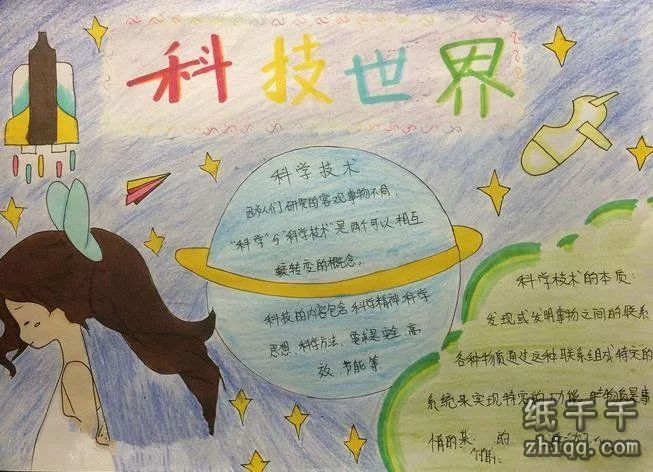 科技世界
科学技术
因人们研究的客观事物不同,
"科学"与"科学技术"是两个可以相互
转变的概念。
科技的内容包含科学精神 科学
思想、科学方法,要求是 安全 高
效、节能 等
科学技术的本质:
发现或发明事物之间的联系
各种物质通过这种联系组成特定的
系统来实现特定的功能
情的 的
纸千千
zhiqq.com